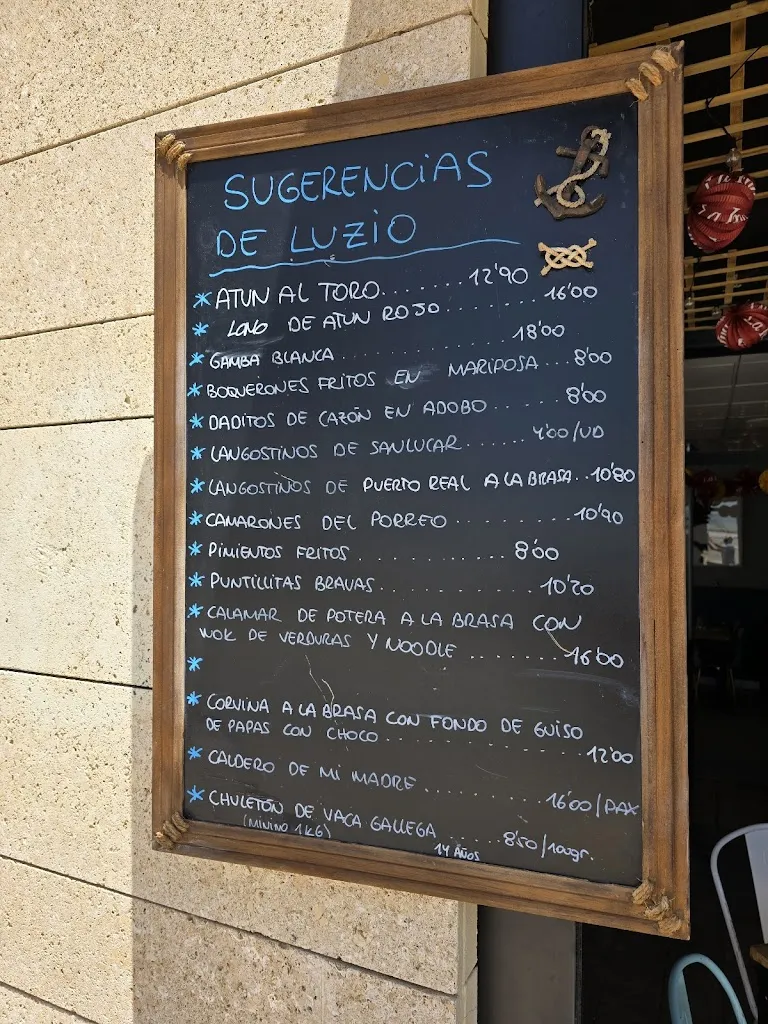 SUGERENCIAS
DE LUZIO
* ATUN AL TORO........12'90
* LOMO DE ATUN ROJO..........16'00
* GAMBA BLANCA....................18'00
* BOQUERONES FRITOS EN MARIPOSA...8'00
* DADITOS DE CAZÓN EN ADOBO........8'00
* LANGOSTINOS DE SANLUCAR.......4'00/UD
* LANGOSTINOS DE PUERTO REAL A LA BRASA..10'80
* CAMARONES DEL PORREO............10'90
* PIMIENTOS FRITOS................8'00
* PUNTILLITAS BRAVAS................10'20
* CALAMAR DE POTERA A LA BRASA CON
WOK DE VERDURAS Y NOODLE..........16'00
*
* CORVINA A LA BRASA CON FONDO DE GUISO
DE PAPAS CON CHOCO......................12'00
* CALDERO DE MI MADRE............16'00/PAX
* CHULETÓN DE VACA GALLEGA.....8'50/100gr.
(MINIMO 1KG)
14 AÑOS